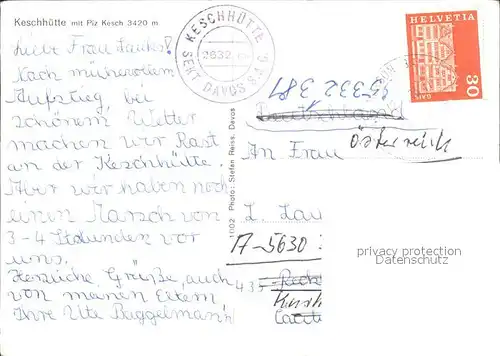 Keschhütte mit Piz Kesch 3420 m
Liebe Frau
Nach mühevollem
Aufstieg, bei
schönem Wetter
machen wir Rast
an der Keschhütte.
Aber wir haben noch
einen Marsch von
3-4 Stunden vor
uns.
Herzliche Grüße, auch
von meinen Eltern
Ihre Ute Buggelmann
KESCHHÜTTE
2632
SEKT. DAVOS S.A.C.
11102 Photo: Stefan Reiss, Davos
HELVETIA
30
GAIS
95332 381
Deutschland
Österreich
An Frau
L. Lau
A-5630
435
privacy protection
Datenschutz